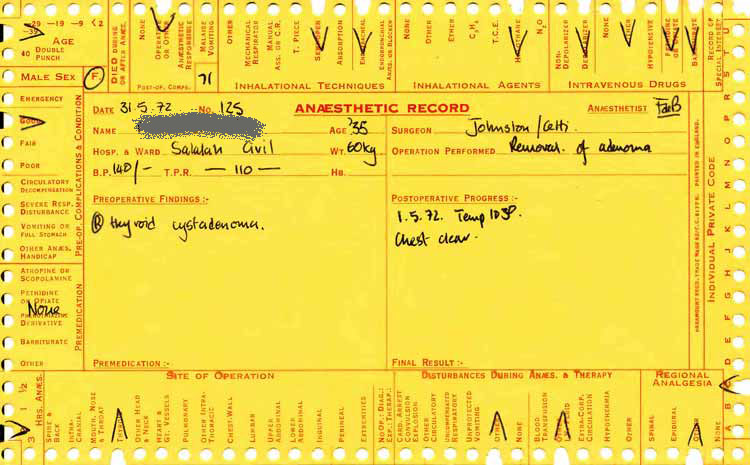 29 -19 -9 <2
39
AGE
40 DOUBLE PUNCH
MALE SEX F
DIED DURING OR AFTER ANÆS.
NONE
OPERATIVE OR OTHER
ANÆSTHETIC RESPONSIBLE
MALAISE VOMITING
OTHER
MECHANICAL RESPIRATOR
MANUAL ASS. OR C.R.
T. PIECE
ABSORPTION
ENDOTRACHEAL
ENDOBRONCHIAL ANÆS. OR BLOCKER
NONE
OTHER
ETHER
C₃H₆
T.C.E.
HALOTHANE
N₂O
NON-DEPOLARIZER
DEPOLARIZER
OTHER
HYPOTENSIVE
PETHIDINE OR OPIATE
BARBITURATE
RECORD OF SPECIAL INTEREST
POST-OP. COMPS.
71
INHALATIONAL TECHNIQUES
INHALATIONAL AGENTS
INTRAVENOUS DRUGS
EMERGENCY
GOOD
FAIR
POOR
CIRCULATORY DECOMPENSATION
SEVERE RESP. DISTURBANCE
VOMITING OR FULL STOMACH
OTHER ANÆS. HANDICAP
PRE-OP. COMPLICATIONS & CONDITION
ATROPINE OR SCOPOLAMINE
PETHIDINE OR OPIATE
None
PHENOTHIAZINE DERIVATIVE
BARBITURATE
OTHER
PREMEDICATION
DATE 31.5.72 No. 125
ANÆSTHETIC RECORD
ANÆSTHETIST
NAME AGE 35
SURGEON Johnston/
HOSP. & WARD Salalah Civil WT. 60kg
OPERATION PERFORMED Removal of adenoma
B.P. 140/- T.P.R. — 110 — HB.
PREOPERATIVE FINDINGS :-
Ⓡ thyroid cystadenoma.
POSTOPERATIVE PROGRESS :-
1.5.72. Temp 103°.
Chest clear.
PREMEDICATION :-
FINAL RESULT :-
PRINTED IN ENGLAND.
INDIVIDUAL PRIVATE CODE
A B C D E F G H I J K L M N O P R S T U
SITE OF OPERATION
DISTURBANCES DURING ANÆS. & THERAPY
REGIONAL ANALGESIA
3 1 ½
HRS. ANÆS.
SPINE & BACK
INTRA-CRANIAL
MOUTH, NOSE & THROAT
THYROID
OTHER HEAD & NECK
HEART & GT. VESSELS
PULMONARY
OTHER INTRA-THORACIC
CHEST-WALL
LUMBAR
UPPER ABDOMINAL
LOWER ABDOMINAL
INGUINAL
PERINEAL
EXTREMITIES
NO OP.: DIAG.: EXP.: THERAP.:
CARD. ARREST CONVULSION EXPLOSION
OTHER CIRCULATORY
UNCOMPENSATED RESPIRATORY
UNPROTECTED VOMITING
OTHER
NONE
BLOOD TRANSFUSION
EXTRA-CORP. CIRCULATION
HYPOTHERMIA
OTHER
SPINAL
EPIDURAL
OTHER
NONE